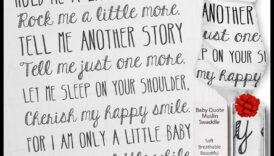 Rock me a little more.
TELL ME ANOTHER STORY
Tell me just one more.
LET ME SLEEP ON YOUR SHOULDER,
Cherish my happy smile.
FOR I AM ONLY A LITTLE BABY
ANOTHER
just one
SLEEP ON
Baby Quote
Muslin
Swaddle
Soft
Breathable
Beautiful